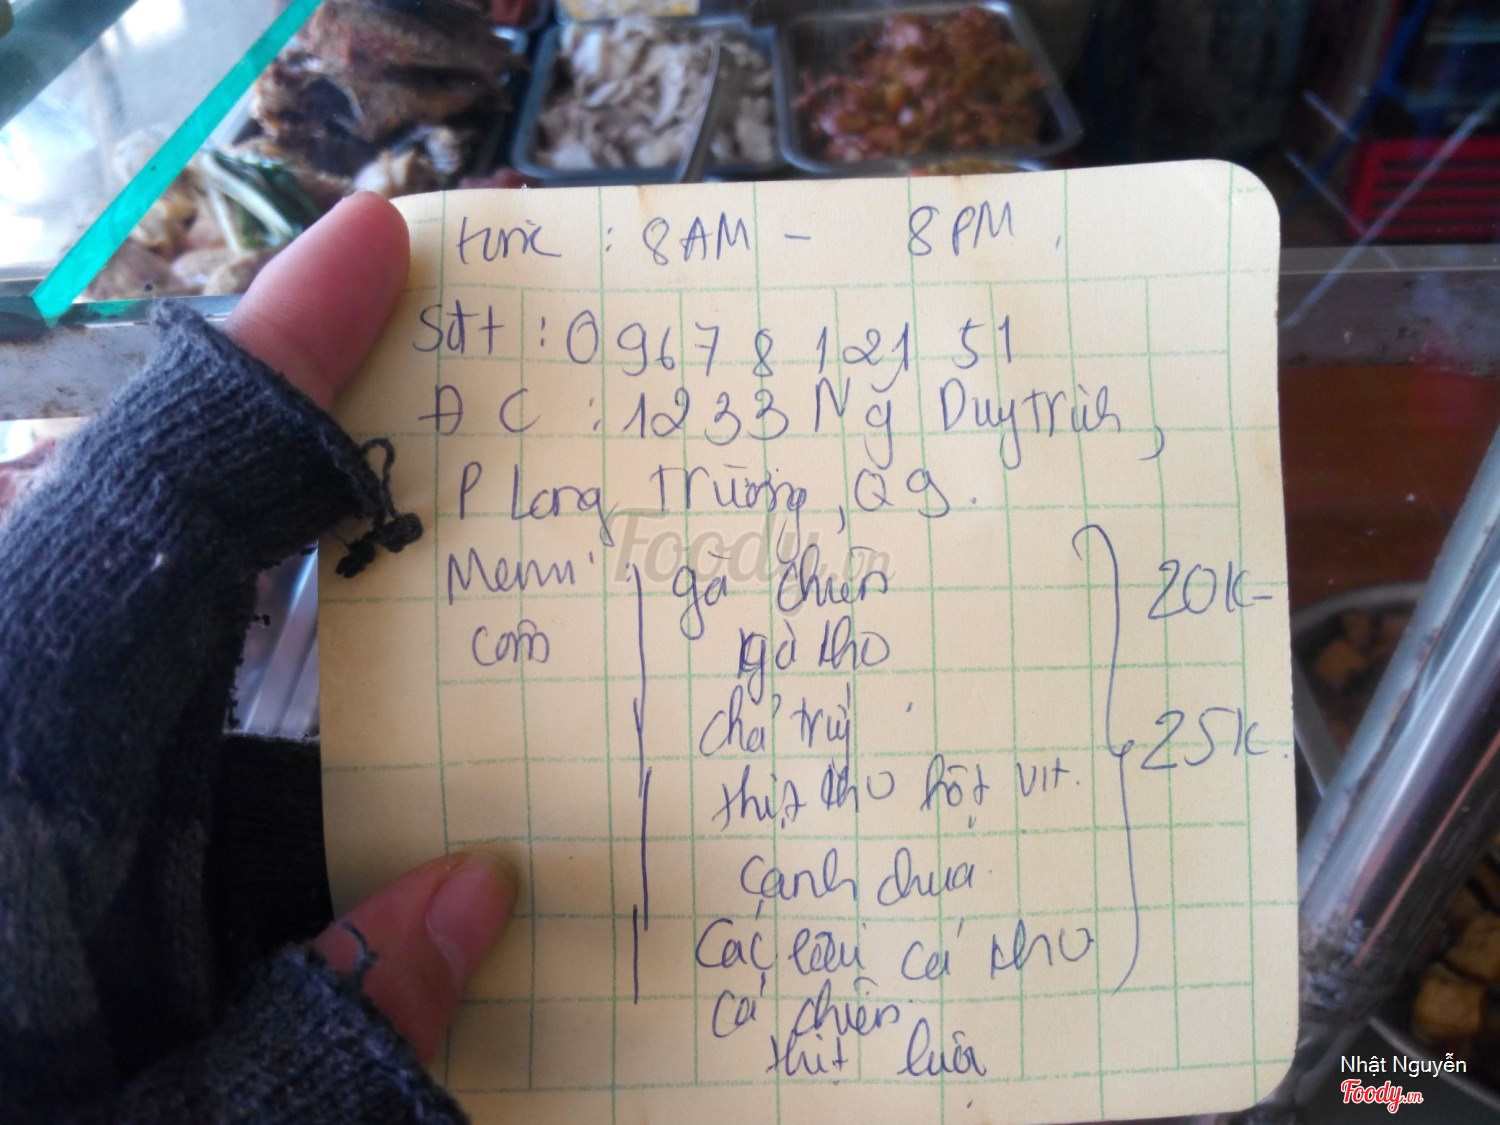 time : 8AM - 8PM.
Sđt : 0967812151
ĐC : 1233 Ng Duy Trinh,
P Long Trường, Q9.
Menu : gà chiên 20K-
cơm gà kho
chả trứng 25K.
thịt kho hột vịt.
canh chua
Các loại cá kho
cá chiên
thịt luộc
Foody.vn
Nhật Nguyễn
Foody.vn